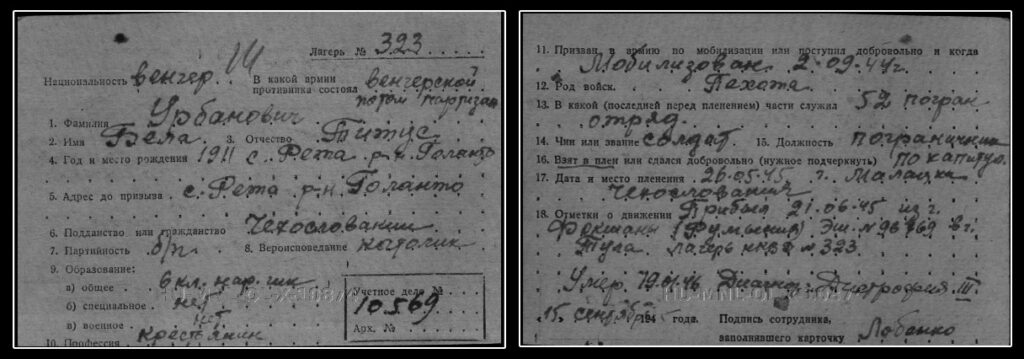 Лагерь № 323
Национальность венгер. В какой армии противника состоял венгерской
потом партизан
1. Фамилия Урбанович
2. Имя Бела 3. Отчество Титус
4. Год и место рождения 1911 с. Рета р-н Голанто
5. Адрес до призыва с. Рета р-н Голанто
6. Подданство или гражданство Чехословакии
7. Партийность б/п 8. Вероисповедание католик
9. Образование:
а) общее 6 кл. нар.
б) специальное нет
в) военное нет
10. Профессия крестьянин
Учетное дело № 10569
Арх. №
11. Призван в армию по мобилизации или поступил добровольно и когда
Мобилизован 2.09.44г.
12. Род войск. Пехота
13. В какой (последней перед пленением) части служил 52 погран
отряд.
14. Чин или звание солдат. 15. Должность пограничник
16. Взят в плен или сдался добровольно (нужное подчеркнуть) по капитул.
17. Дата и место пленения 26.05.45 г. Малацки
Чехословакии
18. Отметки о движении Прибыл 21.06.45 из г.
Фокшаны (Румыния) Эш. № в г.
Тула лагерь НКВД № 323
Умер 19. Диагноз Дистрофия III
15. сентября 194 года. Подпись сотрудника,
заполнявшего карточку Лобенко